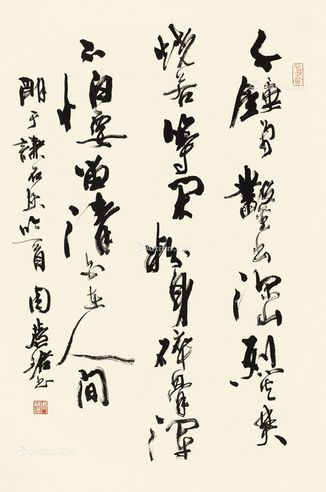 千锤万鑿出深山烈火焚
烧若等闲粉身碎骨浑
不怕要留清白在人间
明于谦石灰吟一首 周慧珺书